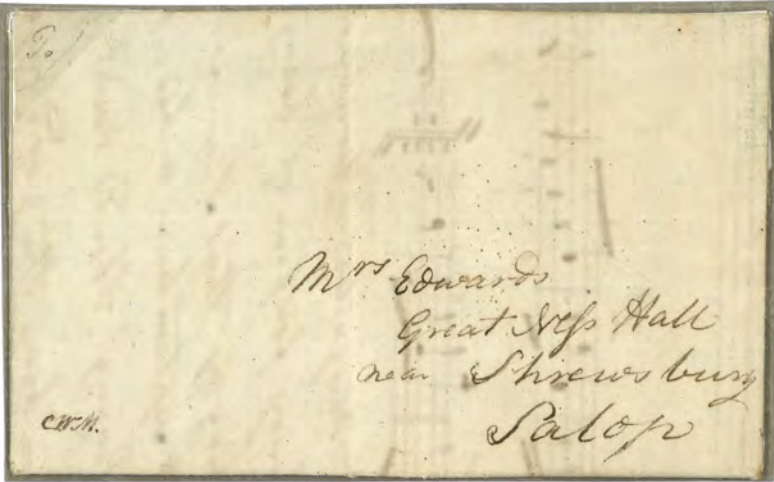 To
Mrs Edwards
Great Neſs Hall
near Shrewsbury
Salop
CWM.